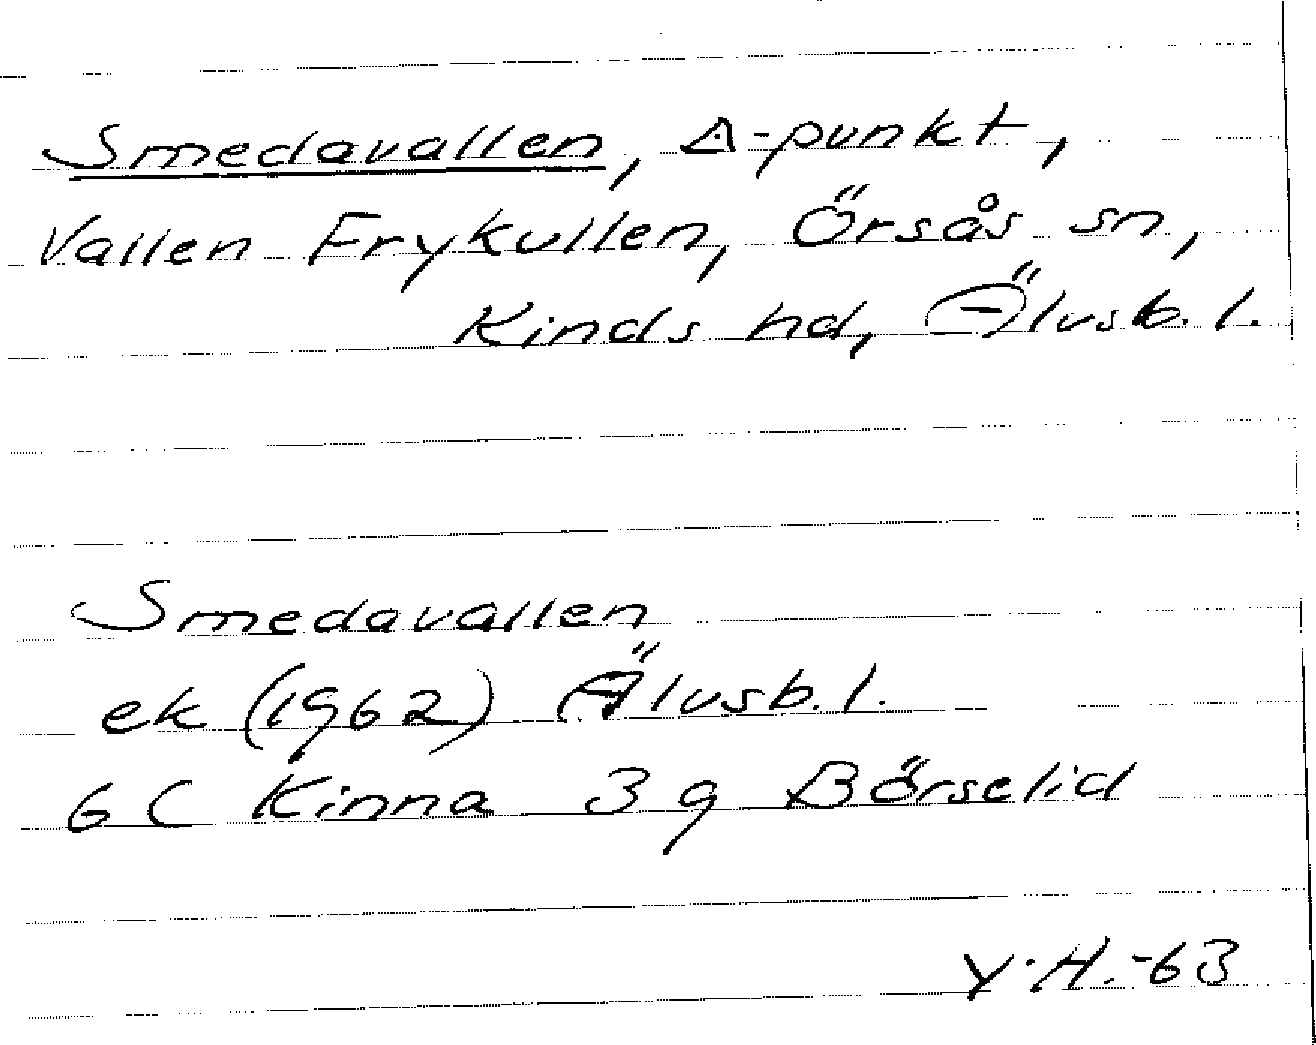 Smedavallen, △-punkt,
Vallen Frykullen, Örsås sn,
Kinds hd, Älvsb. l.
Smedavallen
ek (1962) Älvsb. l.
6 C Kinna 3 g Börselid
Y. H. -63